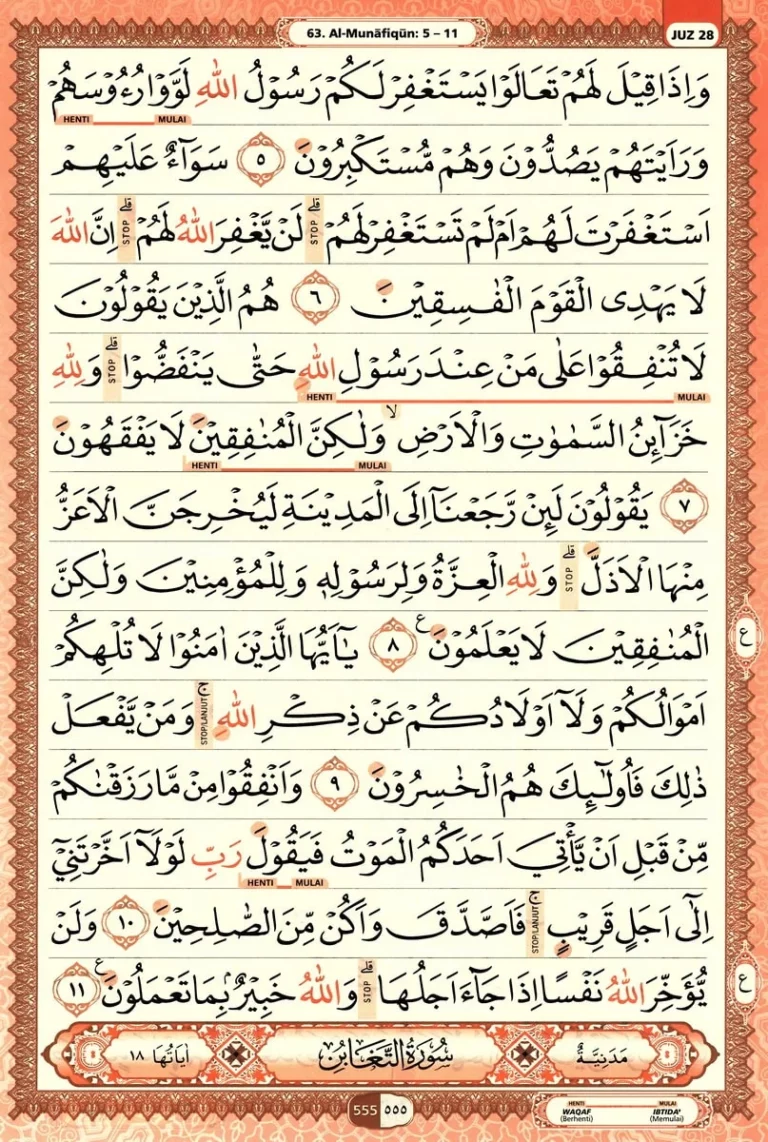 63. Al-Munāfiqūn: 5 – 11
JUZ 28
وَاِذَا قِيْلَ لَهُمْ تَعَالَوْا يَسْتَغْفِرْ لَكُمْ رَسُوْلُ اللّٰهِ لَوَّوْا رُءُوْسَهُمْ
HENTI MULAI
وَرَاَيْتَهُمْ يَصُدُّوْنَ وَهُمْ مُّسْتَكْبِرُوْنَ ٥ سَوَاۤءٌ عَلَيْهِمْ
اَسْتَغْفَرْتَ لَهُمْ اَمْ لَمْ تَسْتَغْفِرْ لَهُمْ ۗ STOP لَنْ يَّغْفِرَ اللّٰهُ لَهُمْ ۗ STOP اِنَّ اللّٰهَ
لَا يَهْدِى الْقَوْمَ الْفٰسِقِيْنَ ٦ هُمُ الَّذِيْنَ يَقُوْلُوْنَ
لَا تُنْفِقُوْا عَلٰى مَنْ عِنْدَ رَسُوْلِ اللّٰهِ حَتّٰى يَنْفَضُّوْا ۗ STOP وَلِلّٰهِ
HENTI MULAI
خَزَاۤىِٕنُ السَّمٰوٰتِ وَالْاَرْضِۙ وَلٰكِنَّ الْمُنٰفِقِيْنَ لَا يَفْقَهُوْنَ
HENTI MULAI
٧ يَقُوْلُوْنَ لَىِٕنْ رَّجَعْنَآ اِلَى الْمَدِيْنَةِ لَيُخْرِجَنَّ الْاَعَزُّ
مِنْهَا الْاَذَلَّ ۗ STOP وَلِلّٰهِ الْعِزَّةُ وَلِرَسُوْلِهٖ وَلِلْمُؤْمِنِيْنَ وَلٰكِنَّ
الْمُنٰفِقِيْنَ لَا يَعْلَمُوْنَ ع ٨ يٰٓاَيُّهَا الَّذِيْنَ اٰمَنُوْا لَا تُلْهِكُمْ
ع
اَمْوَالُكُمْ وَلَآ اَوْلَادُكُمْ عَنْ ذِكْرِ اللّٰهِ ۚ STOP/LANJUT وَمَنْ يَّفْعَلْ
ذٰلِكَ فَاُولٰۤىِٕكَ هُمُ الْخٰسِرُوْنَ ٩ وَاَنْفِقُوْا مِنْ مَّا رَزَقْنٰكُمْ
مِّنْ قَبْلِ اَنْ يَّأْتِيَ اَحَدَكُمُ الْمَوْتُ فَيَقُوْلَ رَبِّ لَوْلَآ اَخَّرْتَنِيْٓ
HENTI MULAI
اِلٰٓى اَجَلٍ قَرِيْبٍ ۚ STOP/LANJUT فَاَصَّدَّقَ وَاَكُنْ مِّنَ الصّٰلِحِيْنَ ١٠ وَلَنْ
يُّؤَخِّرَ اللّٰهُ نَفْسًا اِذَا جَاۤءَ اَجَلُهَا ۗ STOP وَاللّٰهُ خَبِيْرٌۢ بِمَا تَعْمَلُوْنَ ع ١١
ع
مَدَنِيَّةٌ سُوْرَةُ التَّغَابُنِ اٰيَاتُهَا ١٨
555 ٥٥٥
HENTI MULAI
WAQAF IBTIDA'
(Berhenti) (Memulai)